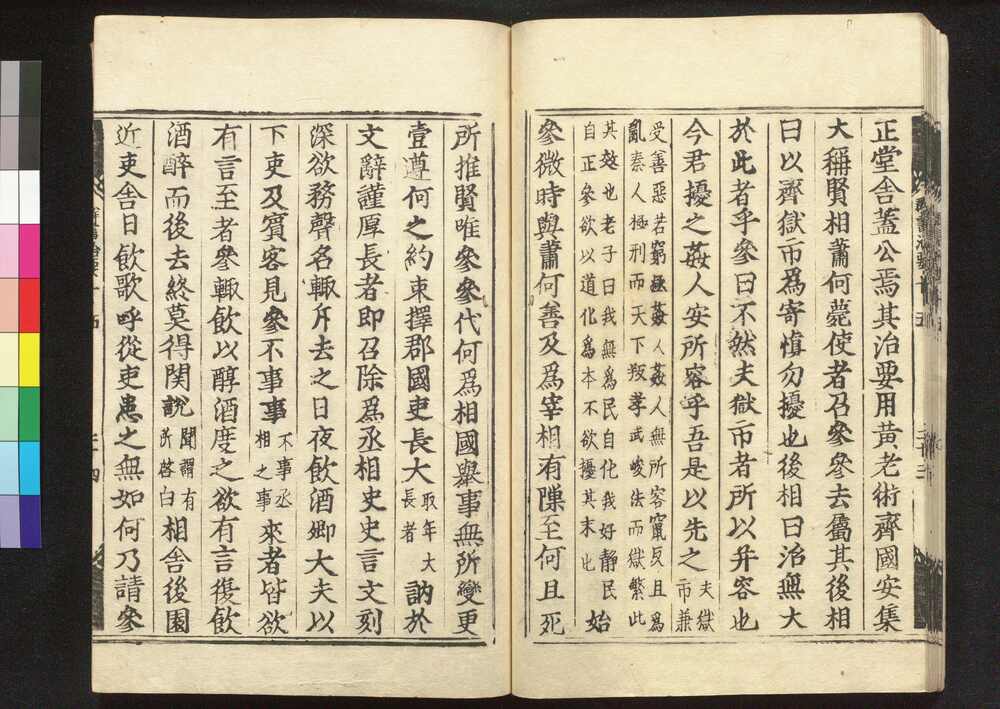 正堂舎蓋公焉其治要用黄老術齊國安集
大稱賢相蕭何薨使者召參參去屬其後相
曰以齊獄市爲寄愼勿擾也後相曰治無大
於此者乎參曰不然夫獄市者所以幷容也
今君擾之姦人安所容乎吾是以先之夫獄市兼
受善惡若窮極姦人姦人無所容竄反且爲
亂秦人極刑而天下叛孝武峻法而獄繁此
其效也老子曰我無爲民自化我好靜民
自正參欲以道化爲本不欲擾其末也始
參微時與蕭何善及爲宰相有隙至何且死
所推賢唯參參代何爲相國舉事無所變更
壹遵何之約束擇郡國吏長大取年大長者訥於
文辭謹厚長者即召除爲丞相史史言文刻
深欲務聲名輒斥去之日夜飲酒卿大夫以
下吏及賓客見參不事事不事丞相之事來者皆欲
有言至者參輒飲以醇酒度之欲有言復飲
酒醉而後去終莫得関說聞謂有所啓白相舎後園
近吏舎吏舎日飲歌呼從吏患之無如何乃請參